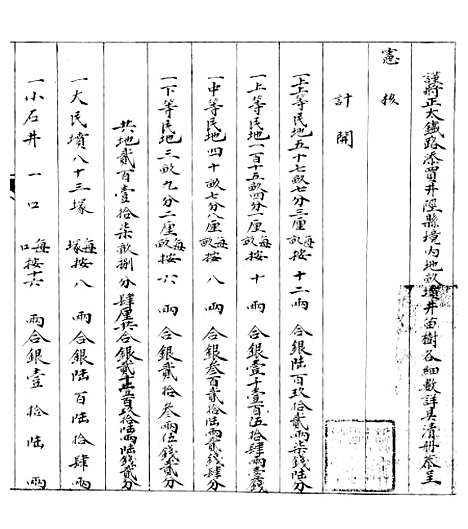 謹將正太鐵路添買井陘縣境內地畝墳井苗樹各細數詳具清册恭呈
憲核
計開
一上上等民地五十七畝七分三厘每畝按十二兩合銀陸百玖拾貳兩柒錢陸分
一上等民地一百十五畝四分一厘每畝按十兩合銀壹千壹百伍拾肆兩壹錢
一中等民地四十畝七分八厘每畝按八兩合銀叁百貳拾陸兩貳錢肆分
一下等民地三畝九分二厘每畝按六兩合銀貳拾叁兩伍錢貳分
共地貳百壹拾柒畝捌分肆厘共合銀貳千壹百玖拾陸兩陸錢貳分
一大民墳八十三塚每塚按八兩合銀陸百陸拾肆兩
一小石井一口每口按十六兩合銀壹拾陸兩